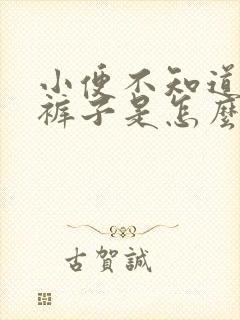 小便不知道
裤子是怎麼
古賀誠